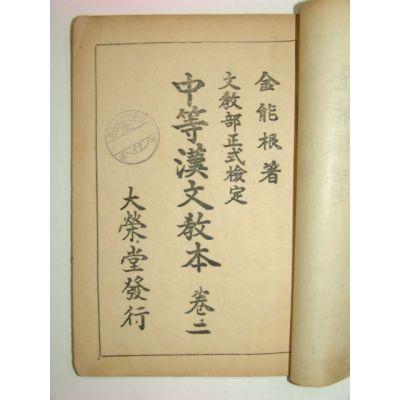 金能根著
文教部正式檢定
中等漢文教本 卷二
大榮堂發行